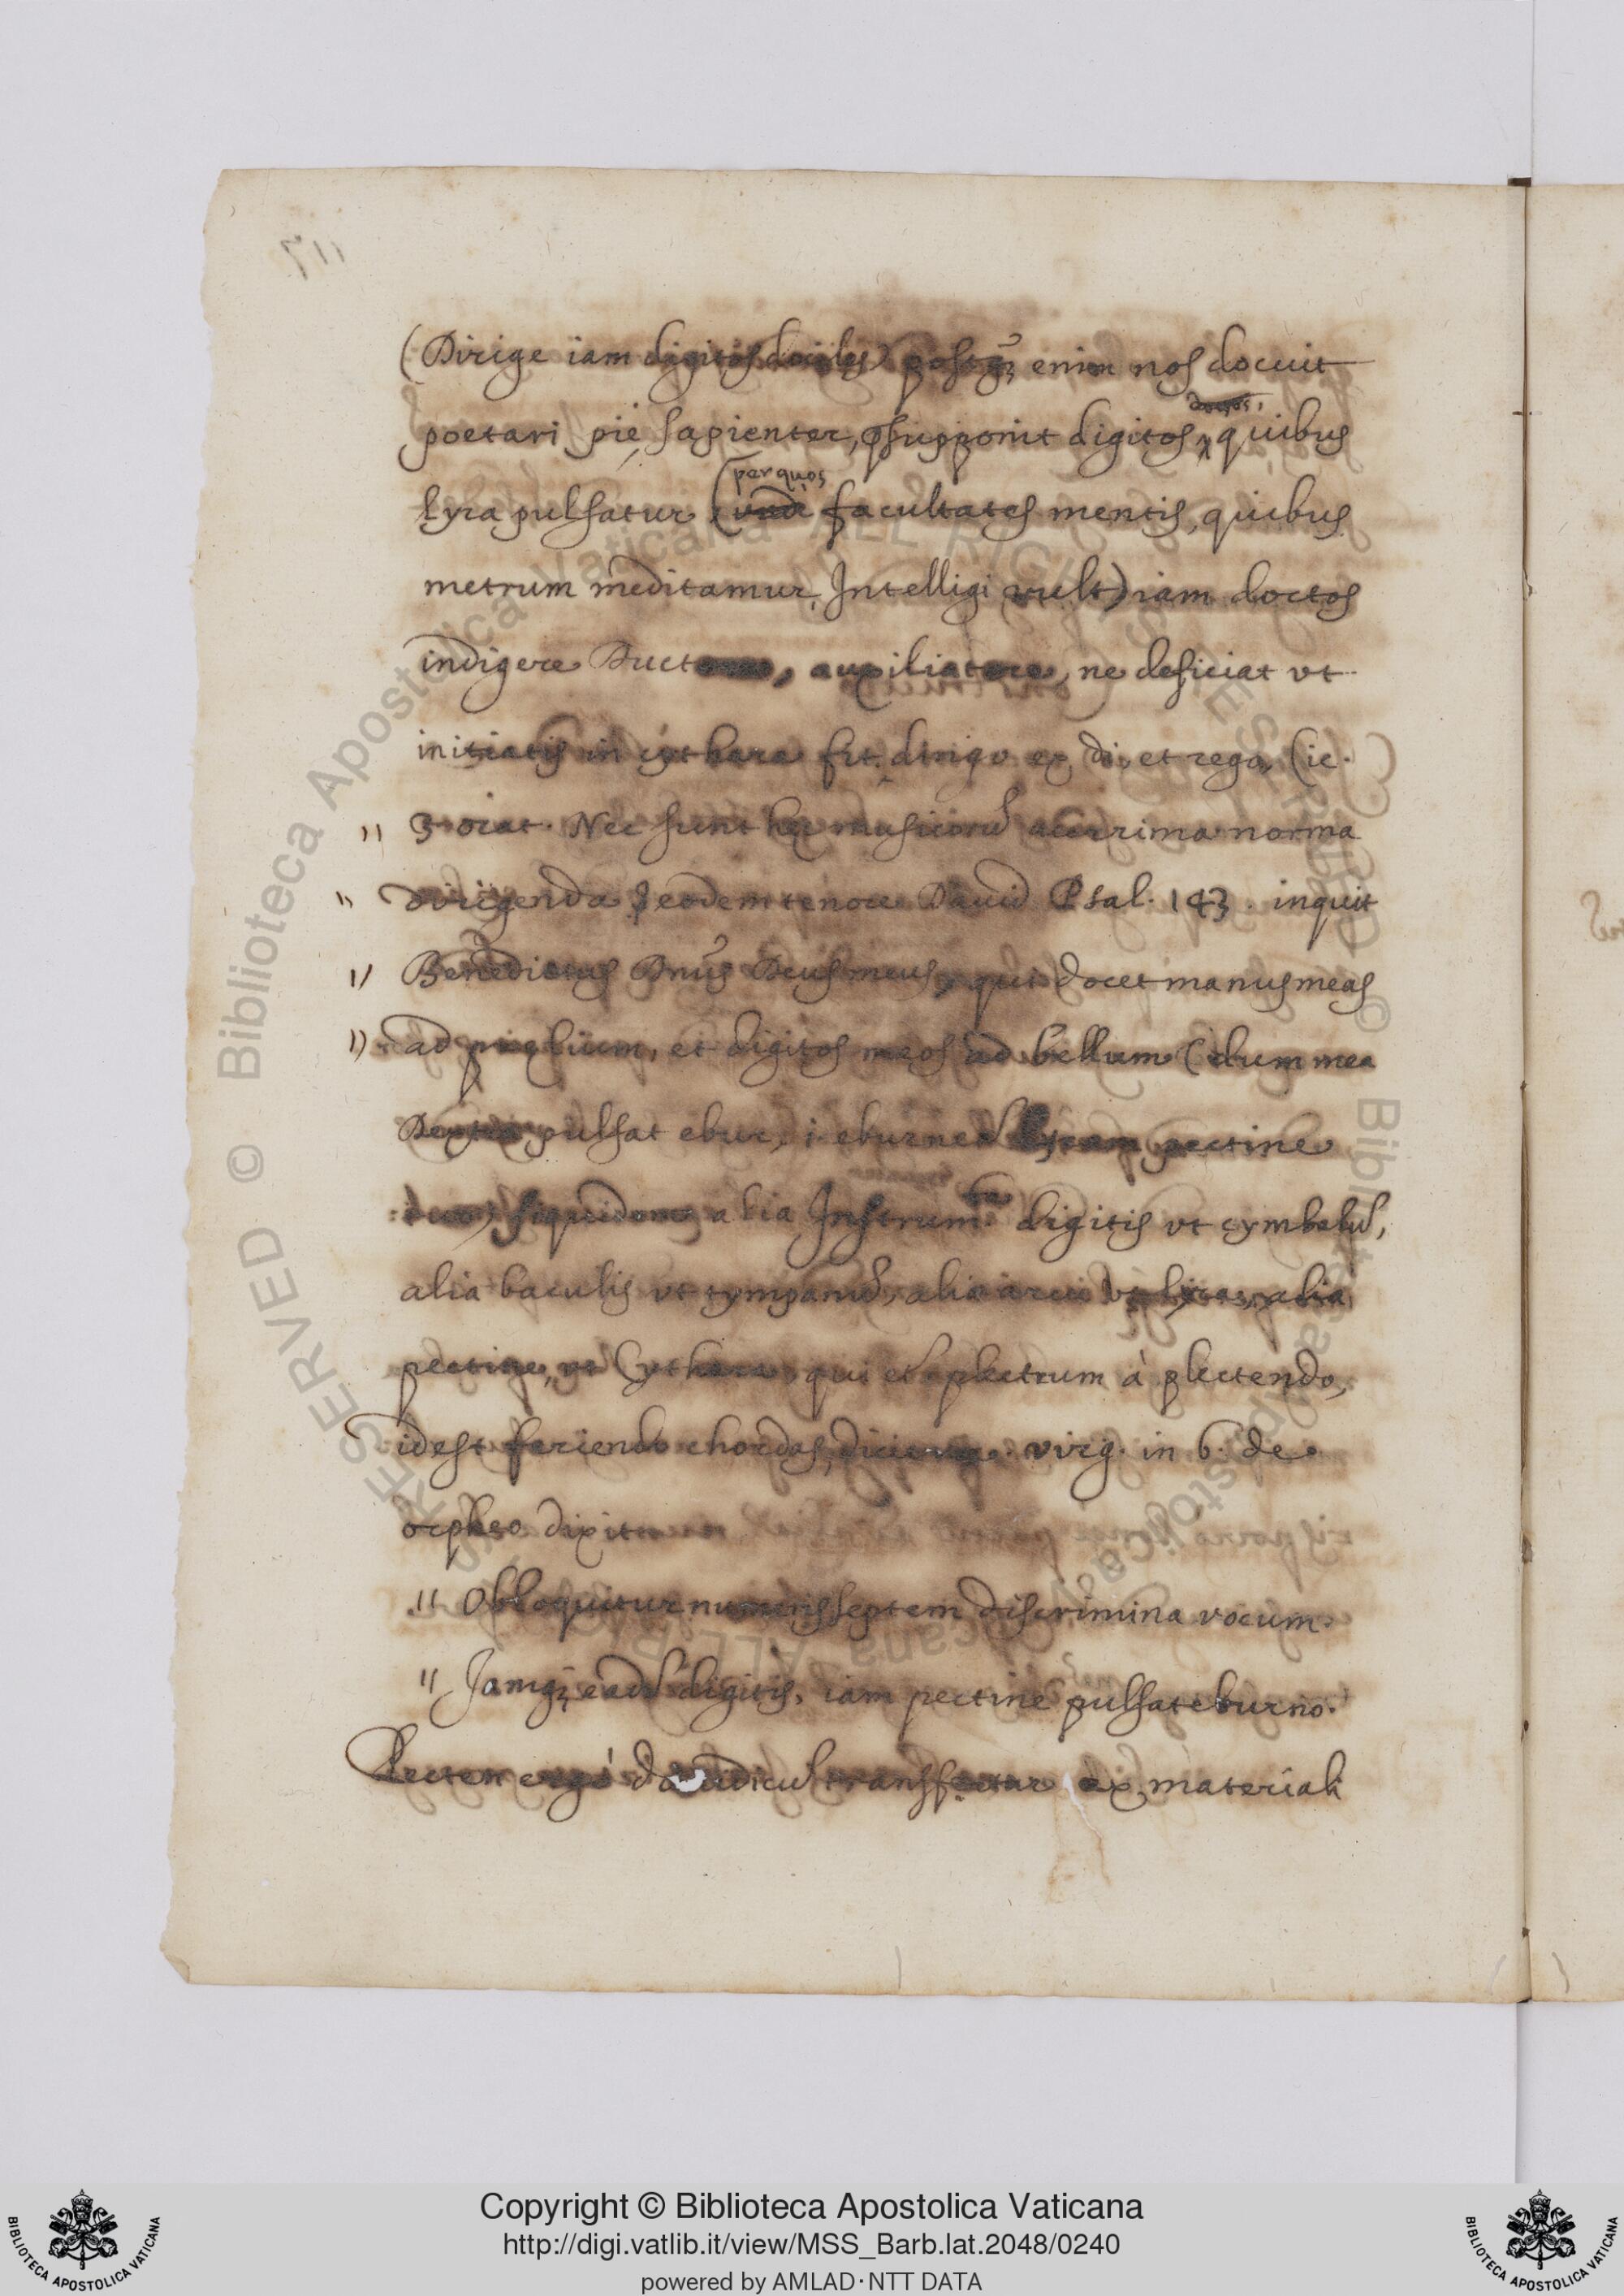 (Dirige iam digitos dociles) postq̃ȝ enim nos docuit
doctos,
poetari piè, sapienter, p̃supponit digitos, quibus
per quos
Lyra pulsatur, ( facultates mentis, quibus
metrum meditamur, Intelligi vult) iam doctos
indigere auxiliatore, ne deficiat vt
initiatis in cythara fit. dirigo ex di, et rego, Cic.
" 3 orat. Nec sunt hęc musicorũ acerrima norma
" dirigenda Ieodem tenore Dauid Psal. 143. inquit
" Benedictus Dñus Deus meus, qui docet manus meas
" ad pręlium, et digitos meos ad bellum (dum mea
Dextra pulsat ebur, i. eburneã Lyram pectine
siquidem alia Instrum.ta digitis vt cymbalũ,
alia baculis vt tympanũ, alia arcu vt lyra, alia
pectine, vt Cythara, qui et plectrum à plectendo,
idest feriendo chordas, dicitur. virg. in 6. de
orpheo dixit
" Obloquitur numeris septem discrimina vocum.
" Iamqȝ eadẽ digitis, iam pectine pulsat eburno.
Pecten ergò dauidicus transfertur ex materiali
Copyright © Biblioteca Apostolica Vaticana
http://digi.vatlib.it/view/MSS_Barb.lat.2048/0240
powered by AMLAD·NTT DATA
BIBLIOTECA APOSTOLICA VATICANA
BIBLIOTECA APOSTOLICA VATICANA
© Biblioteca Apostolica Vaticana ALL RIGHTS RESERVED
© Biblioteca Apostolica Vaticana ALL RIGHTS RESERVED